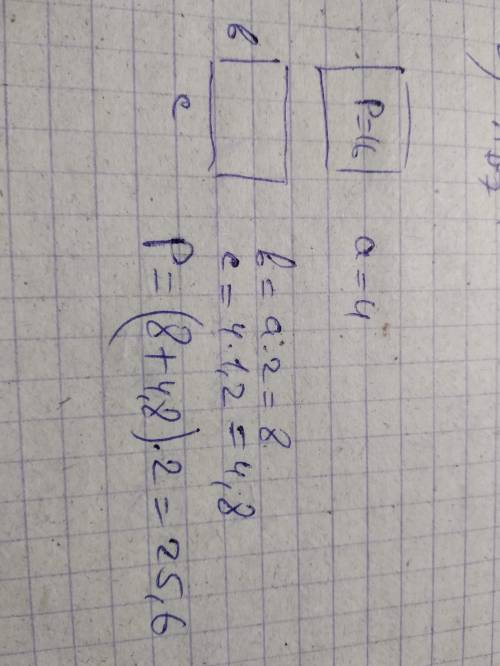 P=16
a=4
b
c
b=a·2=8
c=4·1,2=4,8
P=(8+4,8)·2=25,6